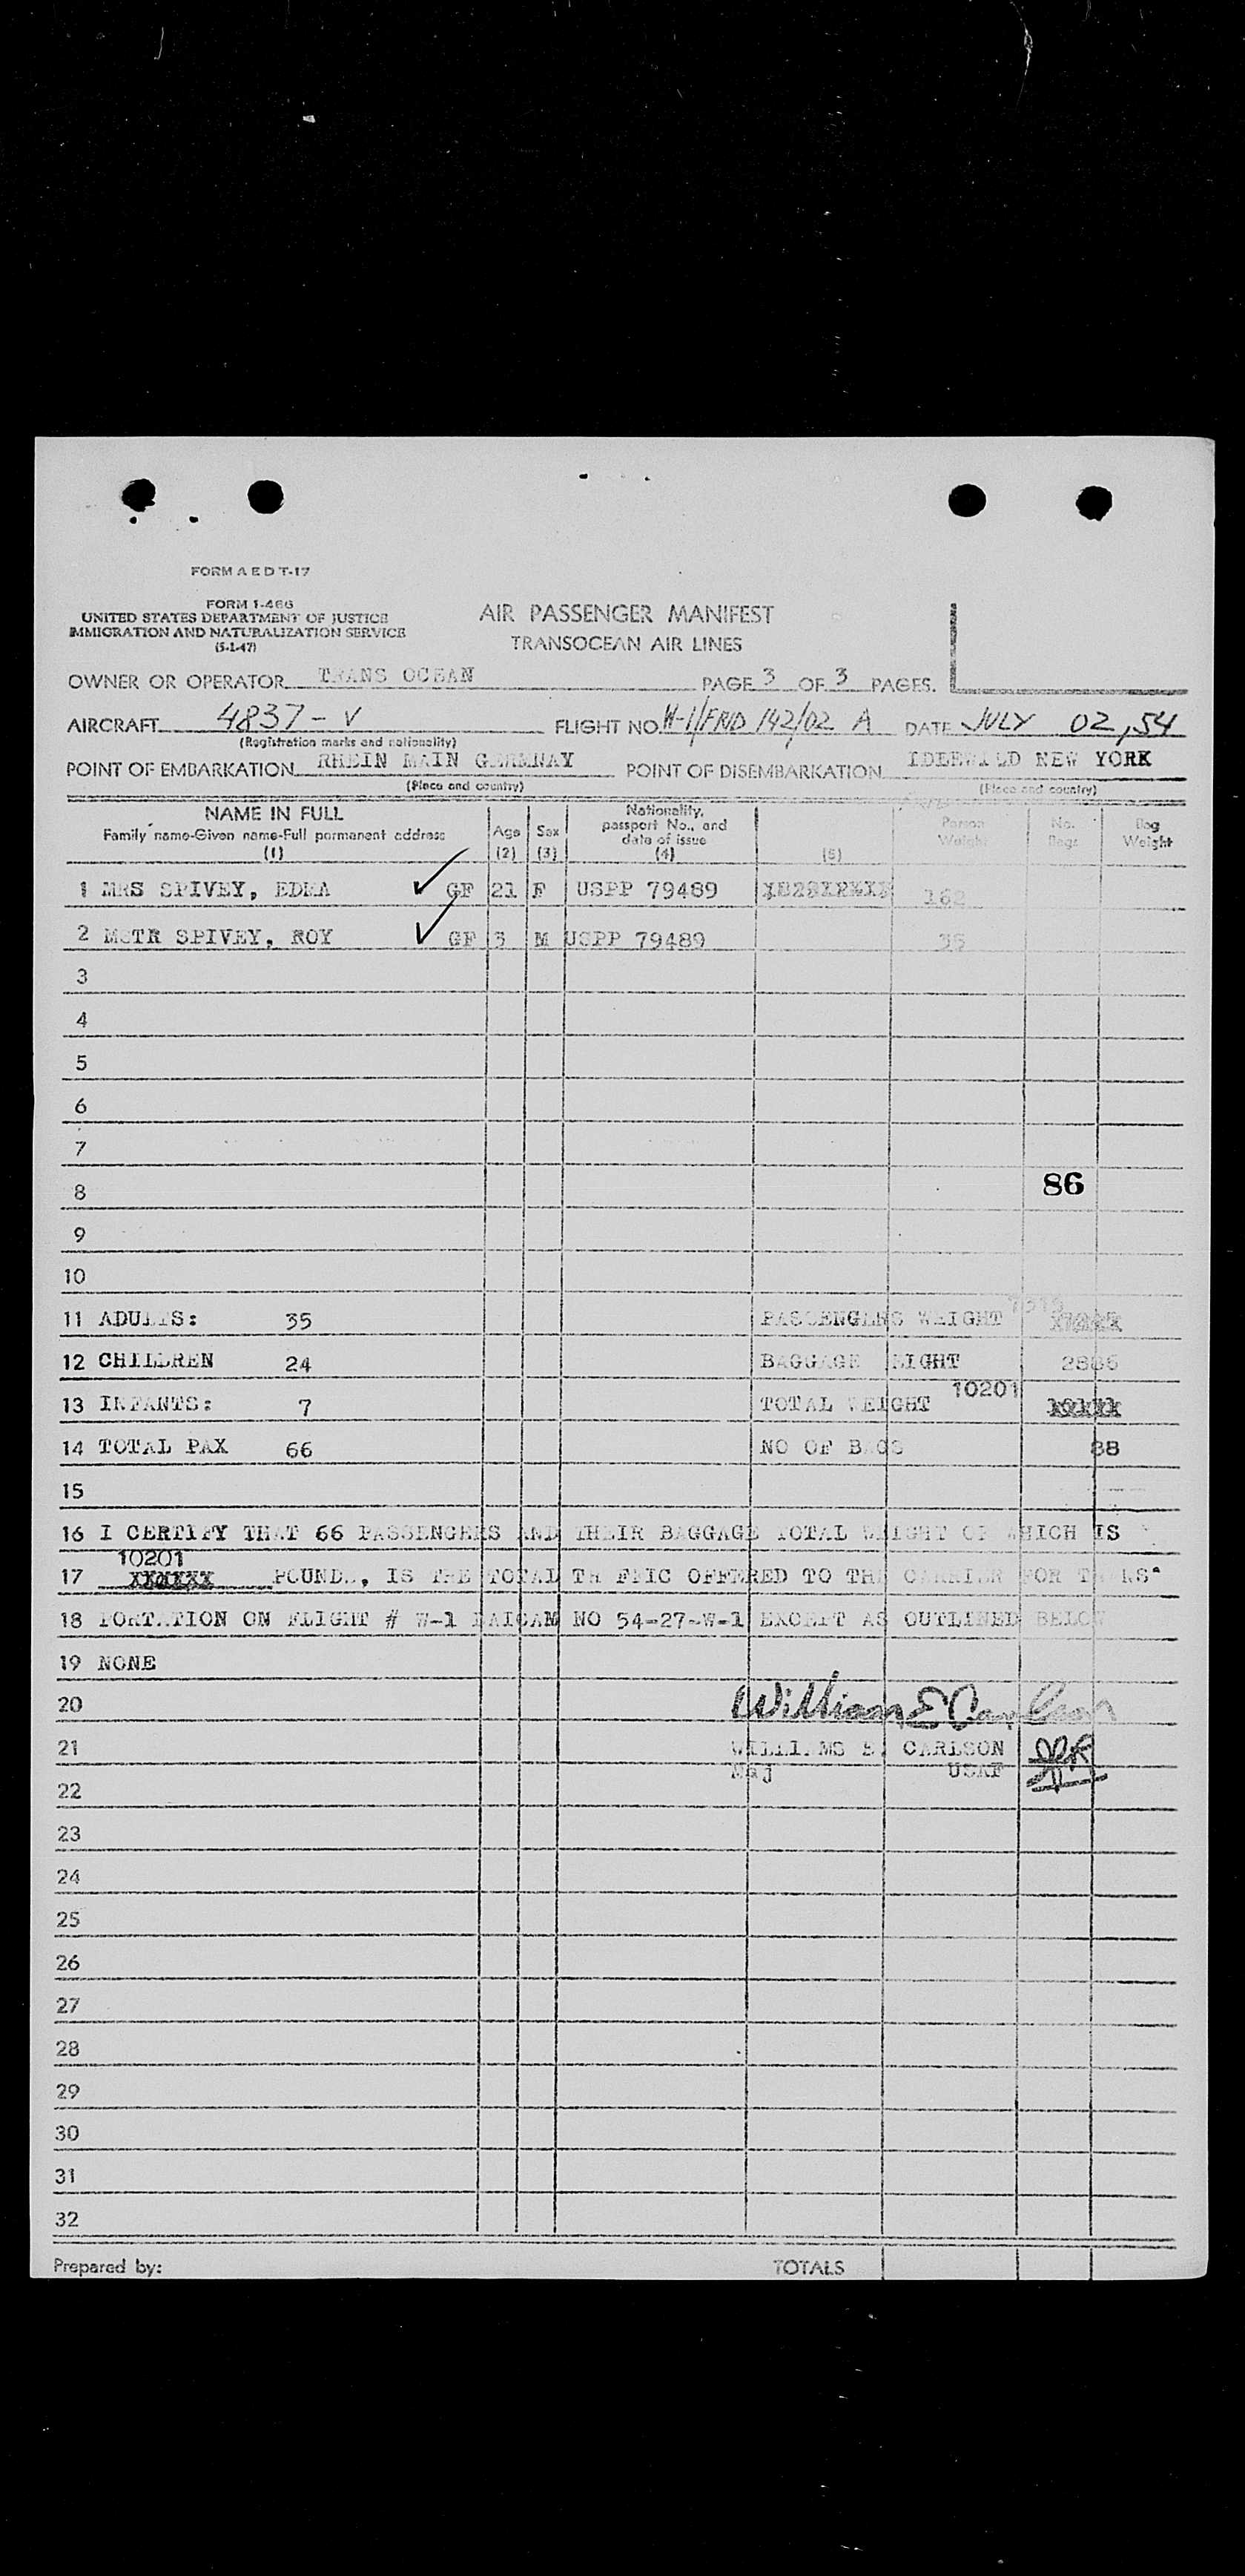 FORM A E D T-17
FORM 1-466
UNITED STATES DEPARTMENT OF JUSTICE
IMMIGRATION AND NATURALIZATION SERVICE
(5-1-47)
AIR PASSENGER MANIFEST
TRANSOCEAN AIR LINES
OWNER OR OPERATOR TRANS OCEAN PAGE 3 OF 3 PAGES.
AIRCRAFT 4837-V FLIGHT NO. W-1/FRD 142/02 A DATE JULY 02, 54
(Registration marks and nationality)
POINT OF EMBARKATION RHEIN MAIN GERMNAY POINT OF DISEMBARKATION IDLEWILD NEW YORK
(Place and country) (Place and country)
NAME IN FULL
Family name-Given name-Full permanent address
(1)
Age
(2)
Sex
(3)
Nationality,
passport No., and
date of issue
(4)
(5)
Person
Weight
No.
Bags
Bag
Weight
1 MRS SPIVEY, EDEA GF 21 F USPP 79489 162
2 MSTR SPIVEY, ROY GF 3 M USPP 79489 35
3
4
5
6
7
8 86
9
10
11 ADULTS: 35 PASSENGERS WEIGHT 7315
12 CHILDREN 24 BAGGAGE WEIGHT 2886
13 INFANTS: 7 TOTAL WEIGHT 10201
14 TOTAL PAX 66 NO OF BAGS 88
15
16 I CERTIFY THAT 66 PASSENGERS AND THEIR BAGGAGE TOTAL WEIGHT OF WHICH IS
10201
17 POUNDS, IS THE TOTAL TRAFFIC OFFERED TO THE CARRIER FOR TRANS-
18 PORTATION ON FLIGHT # W-1 NO 54-27-W-1 EXCEPT AS OUTLINED BELOW
19 NONE
20 William E Carlson
21 WILLIAMS E. CARLSON
Maj USAF
22
23
24
25
26
27
28
29
30
31
32
Prepared by: TOTALS